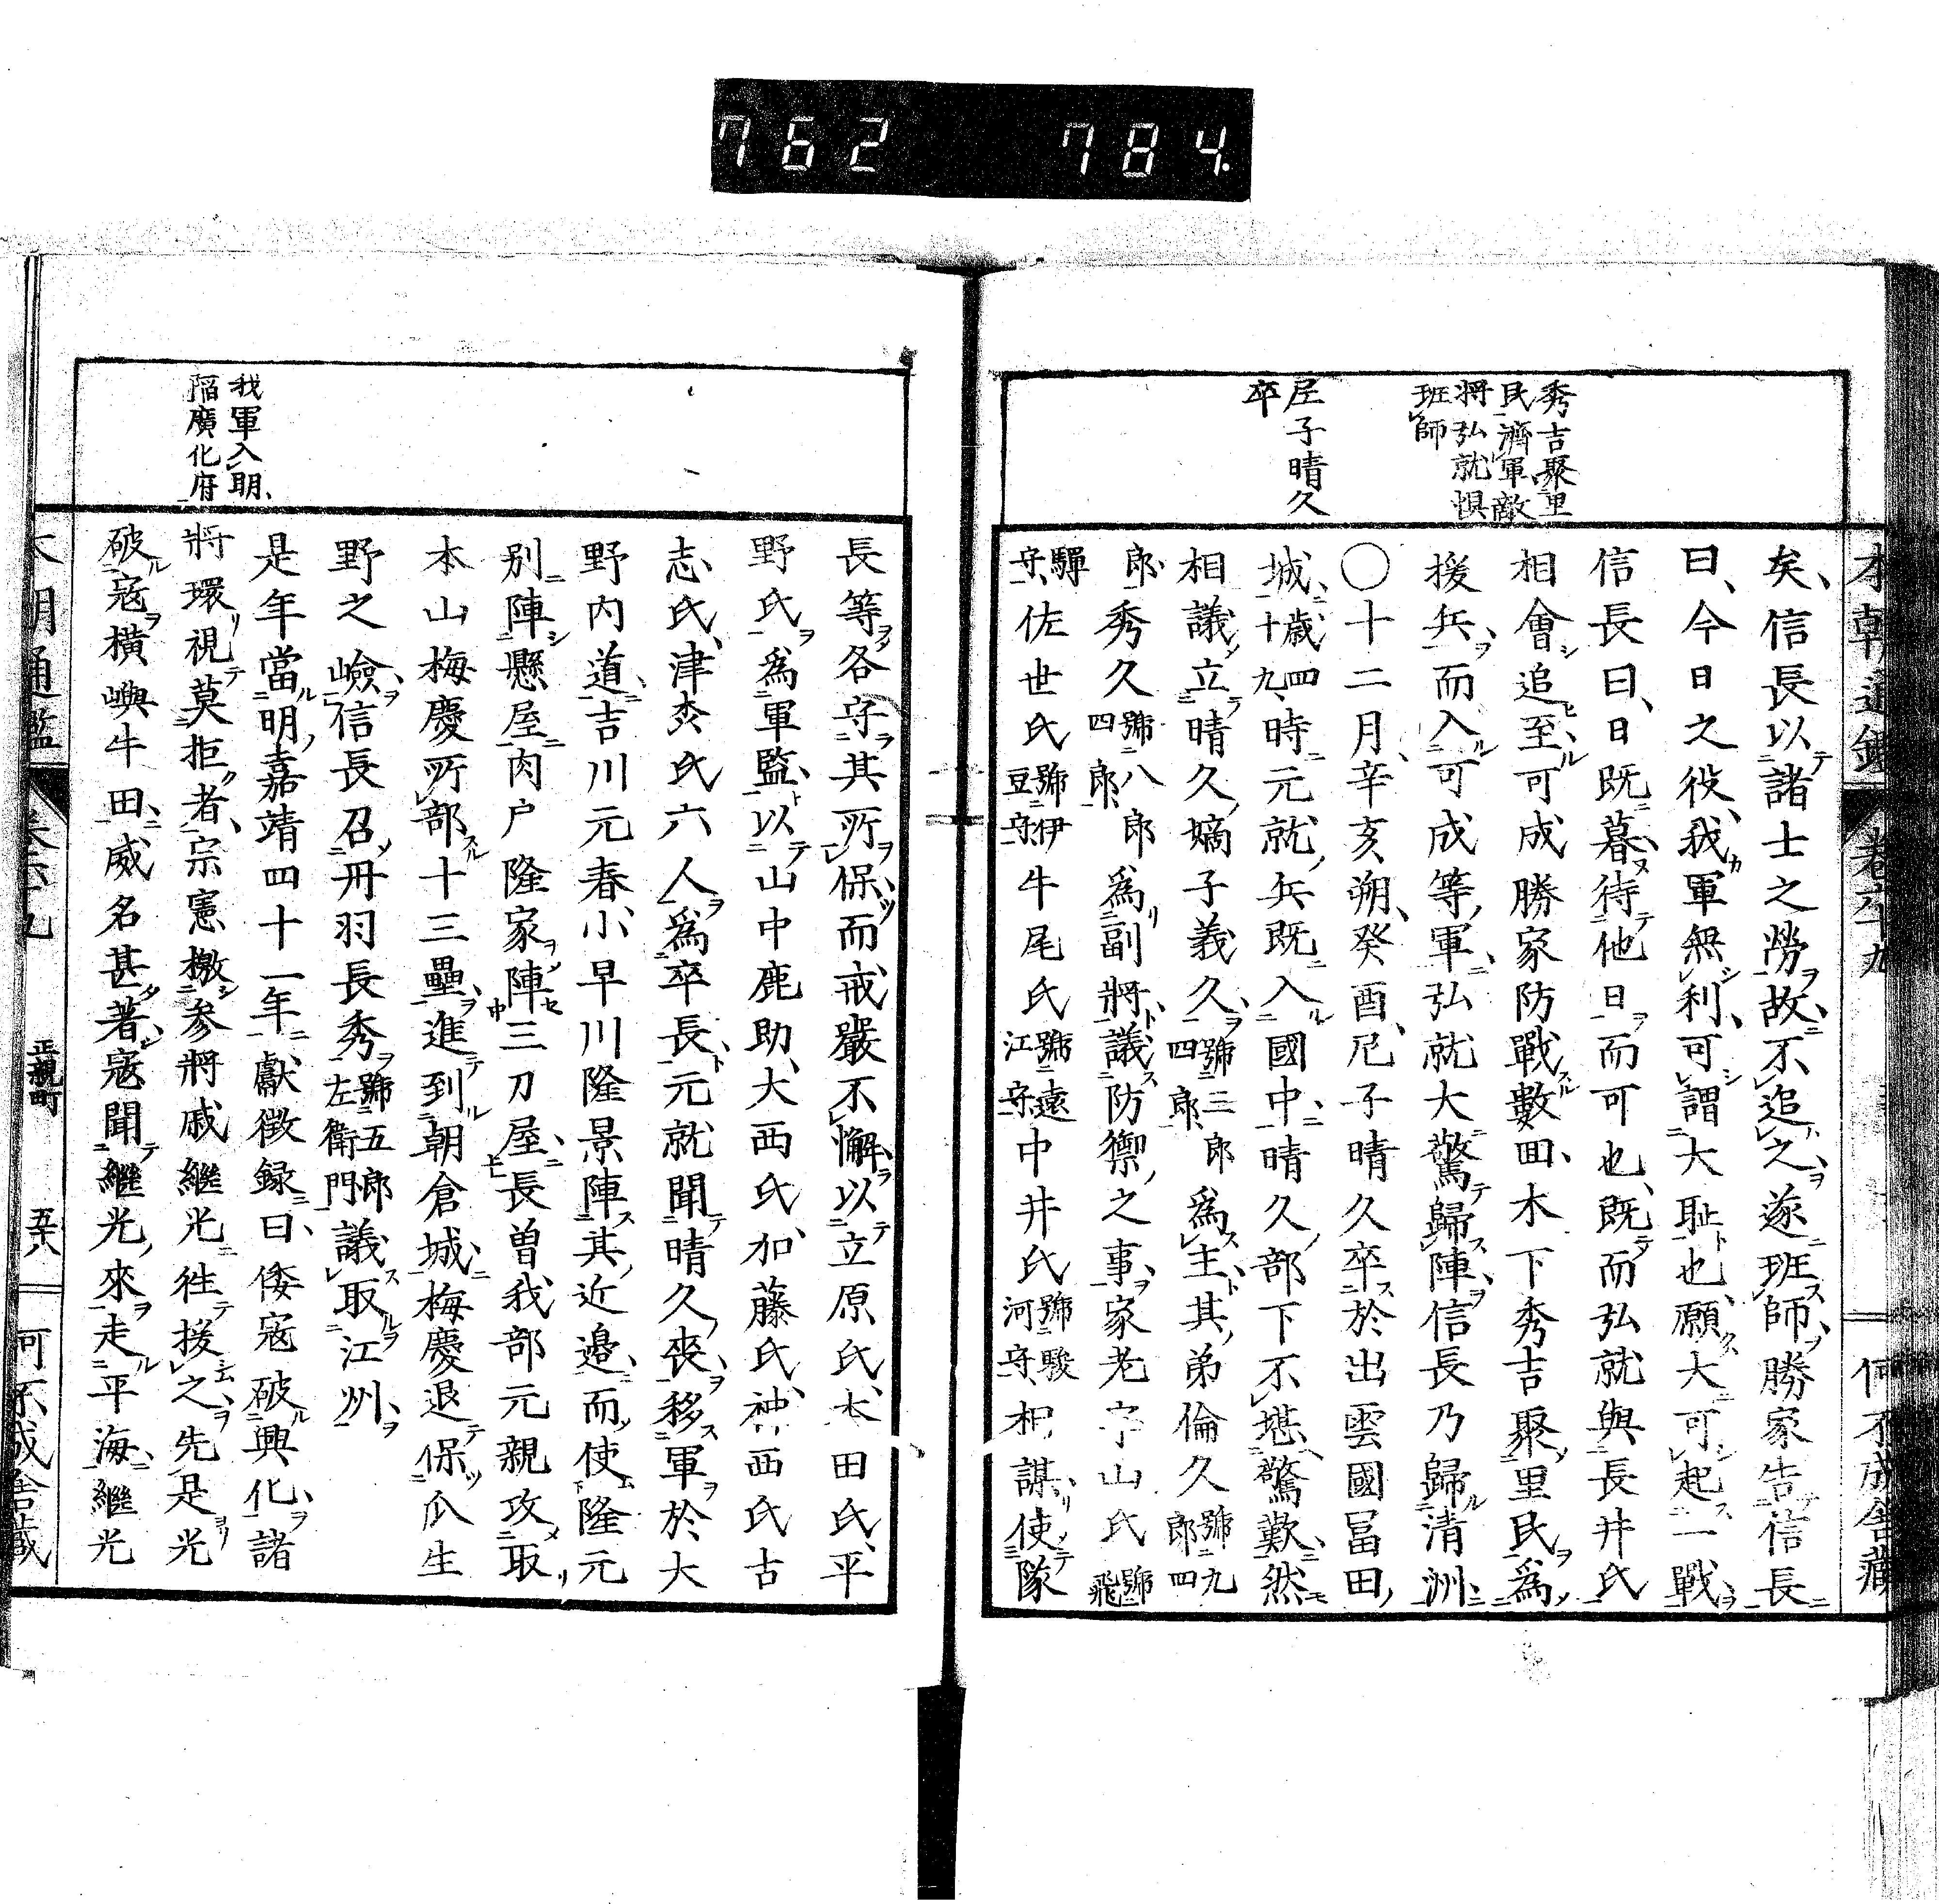 762 784
本朝通鑑 卷六十九 何不成舎藏
秀吉聚里
民濟軍敵
將弘就惧
班師
尼子晴久
卒
矣信長以諸士之勞故不追之遂班師勝家告信長
曰今日之役我軍無利可謂大耻也願大可起一戰
信長曰日既暮待他日而可也既而弘就與長井氏
相會追至可成勝家防戰數回木下秀吉聚里民為
援兵而入可成等軍弘就大驚歸陣信長乃歸清洲
〇十二月辛亥朔癸酉尼子晴久卒於出雲國冨田
城歳四十九時元就兵既入國中晴久部下不堪驚歎然
相議立晴久嫡子義久號三郎四郎為主其弟倫久號九郎四
郎秀久號八郎四郎為副將議防禦之事家老宇山氏號飛
驒守佐世氏號伊豆守牛尾氏號遠江守中井氏號駿河守相謀使隊
我軍入明
陷廣化府
長等各守其所保而戒嚴不懈以立原氏大田氏平
野氏為軍監以山中鹿助大西氏加藤氏神西氏古
志氏津森氏六人為卒長元就聞晴久喪移軍於大
野内道吉川元春小早川隆景陣其近邉而使隆元
别陣懸屋肉户隆家陣三刀屋長曽我部元親攻取
本山梅慶所部十三壘進到朝倉城梅慶退保瓜生
野之嶮信長召丹羽長秀號五郎左衛門議取江州
是年當明嘉靖四十一年獻徴録曰倭寇破興化諸
將環視莫拒者宗憲檄参將戚繼光往援之先是光
破寇横嶼牛田威名甚著寇聞繼光來走平海繼光
本朝通鑑 卷六十九 正親町 五十八 何不成舎藏